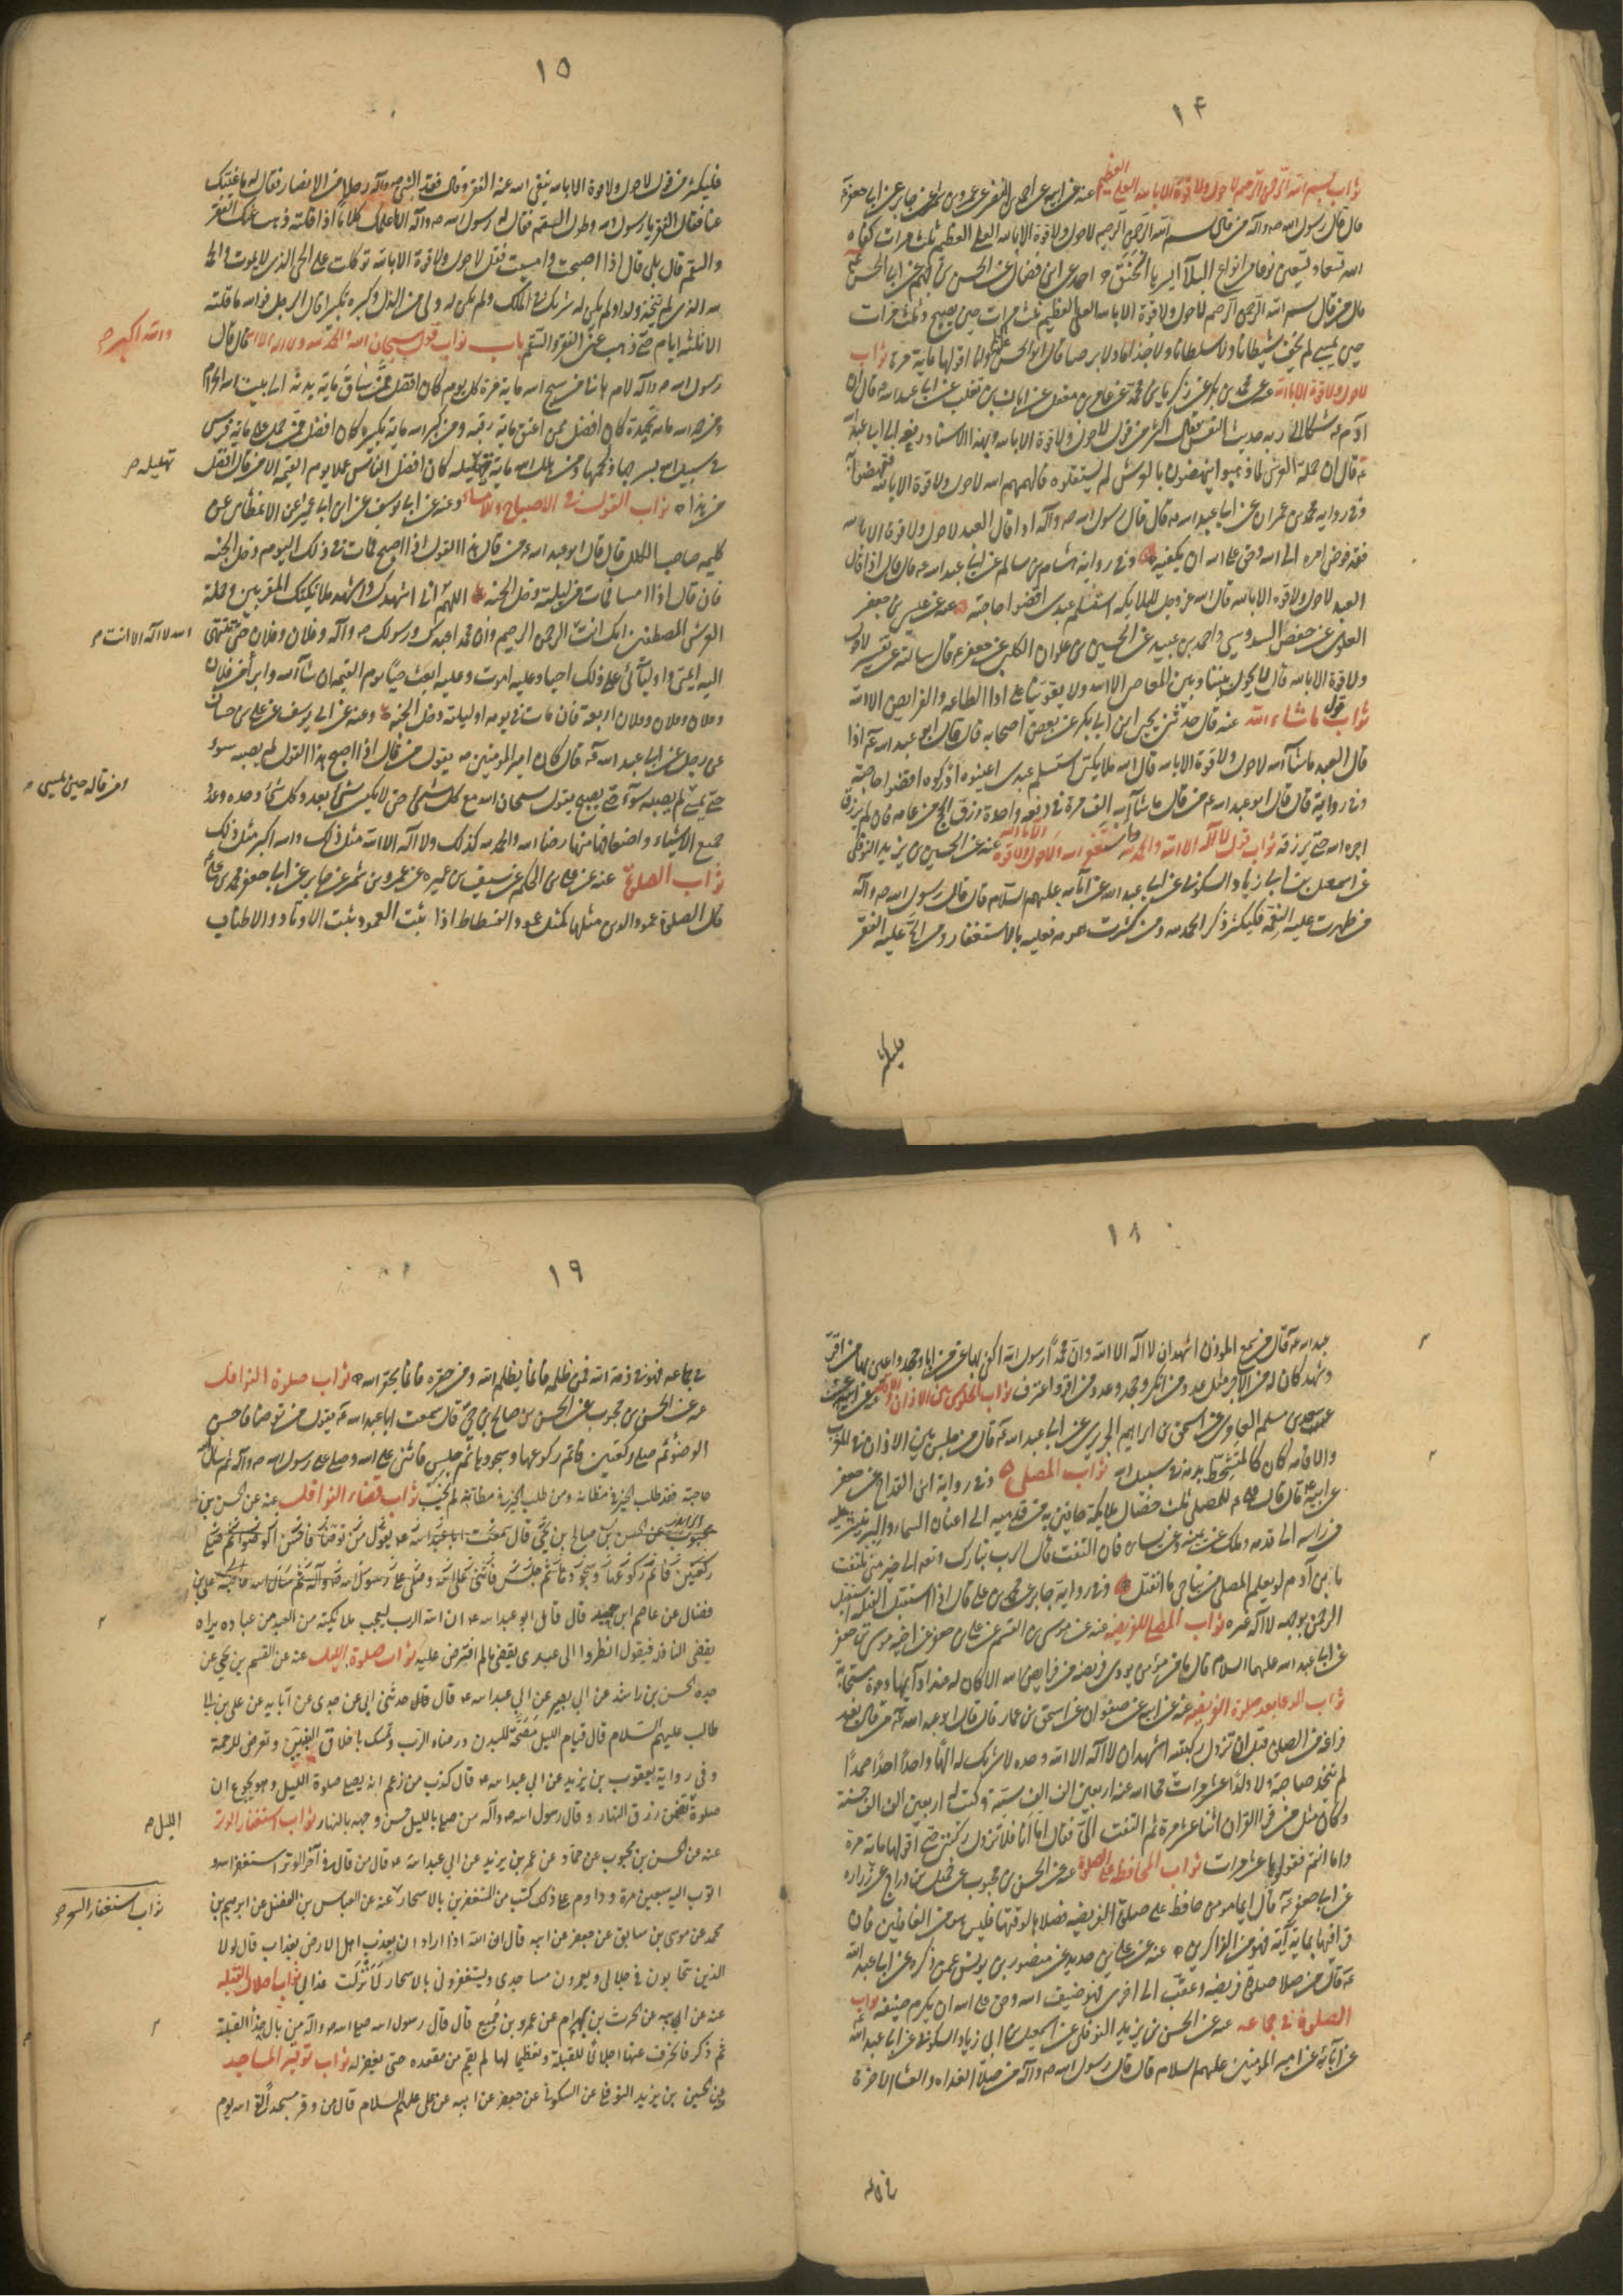 ١٤
ثواب بسم الله الرحمن الرحيم لا حول ولا قوة الا بالله العلي العظيم عنه عن ابيه عن احمد بن النضر عن عمرو بن شمر عن جابر عن ابي جعفر ع
قال قال رسول الله ص وآله من قال بسم الله الرحمن الرحيم لا حول ولا قوة الا بالله العلي العظيم ثلث مرات كفاه
الله تسعا وتسعين نوعا من انواع البلآ ايسرها الخنق احمد عن ابن فضال عن الحسن بن الجهم عن ابي الحسن ع
قال من قال بسم الله الرحمن الرحيم لا حول ولا قوة الا بالله العلي العظيم ثلث مرات حين يصبح وثلث مرات
حين يمسي لم يخف شيطانا ولا سلطانا ولا جذاما ولا برصا قال ابو الحسن ع وانا اقولها ماية مرة ثواب
لا حول ولا قوة الا بالله عنه عن محمد بن بكر عن زكريا بن محمد عن عامر بن معقل عن ابان بن تغلب عن ابي عبد الله ع قال ان
آدم ع شكا الى ربه حديث النفس فقال اكثر من قول لا حول ولا قوة الا بالله وبهذا الاسناد رفعه الى ابي عبد الله
ع قال ان حملة العرش لما ذهبوا ينهضون بالعرش لم يستقلوه فالهمهم الله لا حول ولا قوة الا بالله فنهضوا به
وفي رواية محمد بن عمران عن ابي عبد الله ع قال قال رسول الله ص وآله اذا قال العبد لا حول ولا قوة الا بالله
فقد فوض امره الى الله وحق على الله ان يكفيه وفي رواية هشام بن سالم عن ابي عبد الله ع قال قال اذا قال
العبد لا حول ولا قوة الا بالله قال الله عز وجل للملائكه استسلم عبدي اقضوا حاجته عنه عن عيسى بن جعفر
العلوي عن حفص السدوسي واحمد بن عبيد عن الحسين بن علوان الكلبي عن جعفر ع قال سالته عن تفسير لا حول
ولا قوة الا بالله قال لا يحول بيننا وبين المعاصي الا الله ولا يقوينا على اداء الطاعه والفرايض الا الله
ثواب قول ما شاء الله عنه قال حدثني يحيى ابن ابي بكر عن بعض اصحابه قال قال ابو عبد الله ع اذا
قال العبد ما شآ الله لا حول ولا قوة الا بالله قال الله ملائكتي استسلم عبدي اعينوه ادركوه اقضوا حاجته
وفي رواية قال قال ابو عبد الله ع من قال ما شآ الله الف مرة في دفعه واحدة رزق الحج من عامه فان لم يرزق
اخره الله حتى يرزقه ثواب قول لا اله الا الله والحمد لله واستغفر الله ولا حول ولا قوة الا بالله عنه عن الحسين بن يزيد النوفلي
عن اسمعيل بن ابي زياد السكوني عن ابي عبد الله عن آبآئه عليهم السلام قال قال رسول الله ص وآله
من ظهرت عليه النعمة فليكثر ذكر الحمد لله ومن كثرت همومه فعليه بالاستغفار ومن الح عليه الفقر
فليكثر
١٥
فليكثر من قول لا حول ولا قوة الا بالله ينفي الله عنه الفقر وقال فقد النبي ص وآله رجلا من الانصار فقال له ما غيبك
عنا فقال الفقر يا رسول الله وطول السقم فقال له رسول الله ص وآله الا اعلمك كلاما اذا قلته ذهب عنك الفقر
والسقم قال بلى قال اذا اصبحت وامسيت فقل لا حول ولا قوة الا بالله توكلت على الحي الذي لا يموت والحمد
لله الذي لم يتخذ ولدا ولم يكن له شريك في الملك ولم يكن له ولي من الذل وكبره تكبيرا قال الرجل فوالله ما قلته
الا ثلثه ايام حتى ذهب عني الفقر والسقم باب ثواب قول سبحان الله والحمد لله ولا اله الا الله قال قال
والله اكبر ص
رسول الله ص وآله لام هانئ من سبح الله ماية مرة كل يوم كان افضل ممن ساق ماية بدنة الى بيت الله الحرام
ومن حمد الله ماية تحميدة كان افضل ممن اعتق ماية رقبه ومن كبر الله ماية تكبيره كان افضل ممن حمل على ماية فرس
في سبيل الله بسرجها ولجمها ومن هلل الله ماية تهليله كان افضل الناس عملا يوم القيمه الا من قال افضل
تهليله ص
من هذا ثواب القول في الاصباح والامساء وعنه عن ابي يوسف عن ابن ابي عمير عن الانماطي عن
كليمه صاحب الكلل قال قال ابو عبد الله ع من قال هذا القول اذا اصبح فمات في ذلك اليوم دخل الجنه
فان قال اذا امسا فمات من ليلته دخل الجنه اللهم اني اشهدك واشهد ملائكتك المقربين وحملة
العرش المصطفين انك انت الرحمن الرحيم وان محمدا عبدك ورسولك ص وآله وفلان وفلان حتى تنتهي
الله لا اله الا انت ص
اليه ائمتي واوليائي على ذلك احيا وعليه اموت وعليه ابعث حيا يوم القيمه ان شآ الله وابرأ من فلان
وفلان وفلان وفلان اربعة فان مات في يومه او ليلته دخل الجنه وعنه عن ابي يوسف عن علي بن حسان
عن رجل عن ابي عبد الله ع قال كان امير المومنين ع يقول من قال اذا اصبح هذا القول لم يصبه سوء
حتى يمسي لم يصبه سوء حتى يصبح يقول سبحان الله مع كل شئ حتى لا يكون شئ بعدد كل شئ وحده وعدد
ومن قاله حين يمسي ص
جميع الاشياء واضعافها منتها رضا الله والحمد لله كذلك ولا اله الا الله مثل ذلك والله اكبر مثل ذلك
ثواب الصلوة عنه عن علي بن الحكم عن سيف بن عميره عن عمرو بن شمر عن جابر عن ابي جعفر محمد بن علي
قال الصلوة عمود الدين مثلها كمثل عمود الفسطاط اذا ثبت العمود ثبت الاوتاد والاطناب
١٨
عبد الله ع قال من سمع المؤذن اشهد ان لا اله الا الله وان محمدا رسول الله اكتفي بها عن من ابا وجحد واعين بها من اقر
وشهد كان له من الاجر مثل عدد من انكر وجحد وعدد من اقر واعترف ثواب الجلوس بين الاذان والاقامه
سعدان بن مسلم العامري عن اسحق بن ابراهيم الجريري عن ابي عبد الله ع قال من جلس بين الاذان في المغرب
والاقامه كان كالمتشحط بدمه في سبيل الله ثواب المصلي وفي رواية ابن القداح عن جعفر
عن ابيه ع قال قال علي ع للمصلي ثلث خصال ملايكة حافين به من قدميه الى اعنان السماء والبر يتناثر عليه
من راسه الى قدمه وملك عن يمينه وعن يساره فان التفت قال الرب تبارك وتعالى الى خير مني تلتفت
يا بن آدم لو يعلم المصلي من يناجي ما انفتل وفي رواية جابر عن محمد بن علي قال اذا استقبل القبله استقبل
الرحمن بوجهه لا اله غيره ثواب المصلي الفريضه عنه عن موسى بن القسم عن علي بن جعفر عن اخيه موسى بن جعفر
عن ابي عبد الله عليهما السلام قال ما من مؤمن يودي فريضه من فرايض الله الا كان له عند ادآئها دعوة مستجابة
ثواب الدعا بعد صلوة الفريضه عنه عن ابيه عن صفوان عن اسحق بن عمار قال قال ابو عبد الله ع من قال بعد
فراغه من الصلوة قبل ان تزول ركبته اشهد ان لا اله الا الله وحده لا شريك له الها واحدا احدا صمدا
لم يتخذ صاحبة ولا ولدا عشر مرات محا الله عنه اربعين الف الف سيئه وكتب له اربعين الف الف حسنة
وكان مثل من قرا القران اثنا عشر مرة ثم التفت الى فقال اما انا فلا تزول ركبتي حتى اقولها ماية مرة
واما انتم فقولوها عشر مرات ثواب المحافظه على الصلوة عنه عن الحسن بن محبوب عن جميل بن دراج عن زراره
عن ابي جعفر ع قال ايما مومن حافظ على صلوة الفريضه فصلاها لوقتها فليس هو من الغافلين فان
قرا فيها بماية آية فهو من الذاكرين عنه عن علي بن حديد عن منصور بن يونس عمن ذكره عن ابي عبد الله
ع قال من صلا صلوة فريضه وعقب الى اخرى فهو ضيف الله وحق على الله ان يكرم ضيفه ثواب
الصلوة في جماعه عنه عن الحسين بن يزيد النوفلي عن اسمعيل بن ابي زياد السكوني عن ابي عبد الله
عن آبائه عن امير المؤمنين عليهم السلام قال قال رسول الله ص وآله من صلا الغداه والعشا الاخرة
١٩
في جماعه فهو في ذمة الله فمن ظلمه فانما يظلم الله ومن حقره فانما يحقر الله ثواب صلوة النوافل
عنه عن الحسن بن محبوب عن الحسن بن صالح بن حي قال سمعت ابا عبد الله ع يقول من توضا فاحسن
الوضوء ثم صلى ركعتين فاتم ركوعها وسجودها ثم جلس فاثنى على الله وصلى على رسول الله ص وآله ثم سال الله
حاجته فقد طلب الخير في مظانه ومن طلب الخير في مظانه لم يخب ثواب قضاء النوافل عنه عن الحسن بن
محبوب عن الحسن بن صالح بن حي قال سمعت ابا عبد الله ع يقول من توضا فاحسن الوضوء ثم صلى
ركعتين فاتم ركوعها وسجودها ثم جلس فاثنى على الله وصلى على رسول الله ص وآله ثم سال الله حاجته علي بن
فضال عن عاصم ابن حميد قال قال ابو عبد الله ع ان الله الرب ليعجب ملائكته من العبد من عباده يراه
يقضي النافله فيقول انظروا الى عبدي يقضي ما لم افترض عليه ثواب صلوة الليل عنه عن القسم بن يحيى عن
جده الحسن بن راشد عن ابي بصير عن ابي عبد الله ع قال قال حدثني ابي عن جدي عن آبايه عن علي بن ابي
طالب عليهم السلام قال قيام الليل مصحة للبدن ورضاء الرب وتمسك باخلاق النبيين وتعرض للرحمة
وفي رواية يعقوب بن يزيد عن ابي عبد الله ع قال كذب من زعم انه يصلي صلوة الليل وهو يجوع ان
صلوة تضمن رزق النهار وقال رسول الله ص وآله من صلى بالليل حسن وجهه بالنهار ثواب استغفار الوتر
الليل ص
عنه عن الحسن بن محبوب عن حماد عن عمر بن يزيد عن ابي عبد الله ع قال من قال في آخر الوتر استغفر الله و
اتوب اليه سبعين مرة وداوم على ذلك كتب من المستغفرين بالاسحار عنه عن العباس بن الفضل عن ابرهيم بن
ثواب استغفار السحر ص
محمد عن موسى بن سابق عن جعفر عن ابيه قال ان الله اذا اراد ان يعذب اهل الارض بعذاب قال لولا
الذين يتحابون في جلالي ويعمرون مساجدي ويستغفروني بالاسحار لانزلت عذابي ثواب اجلال القبله
عنه عن ابيه عن الحرث بن بهرام عن عمرو بن جميع قال قال رسول الله صلى الله وآله من بال حذآ القبلة
ثم ذكر فانحرف عنها اجلالا للقبلة وتعظيما لها لم يقم من مقعده حتى يغفر له ثواب توقير المساجد
عنه عن الحسين بن يزيد النوفلي عن السكوني عن جعفر عن ابيه عن علي عليهم السلام قال من وقر مسجدا لقي الله يوم